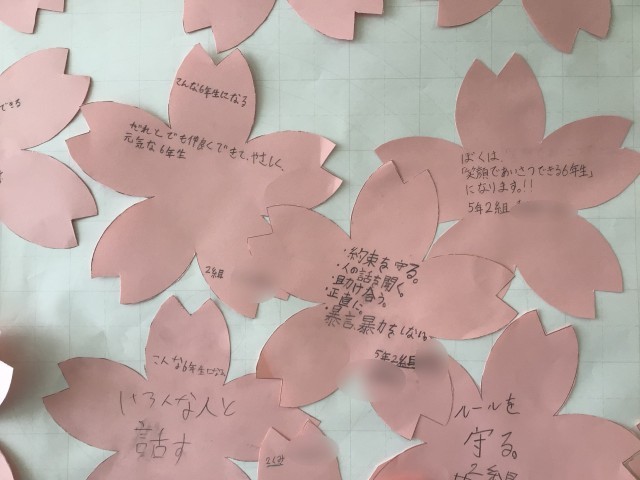 できる
こんな6年生になる
だれとでも仲良くできて、やさしく、
元気な6年生
2組
ぼくは、
「笑顔であいさつできる6年生」
になります。!!
5年2組
・約束を守る。
・人の話を聞く。
・助け合う。
・正直に。
・暴言、暴力をしない。
5年2組
こんな6年生に
いろんな人と
話す
ルールを
守る。
2組